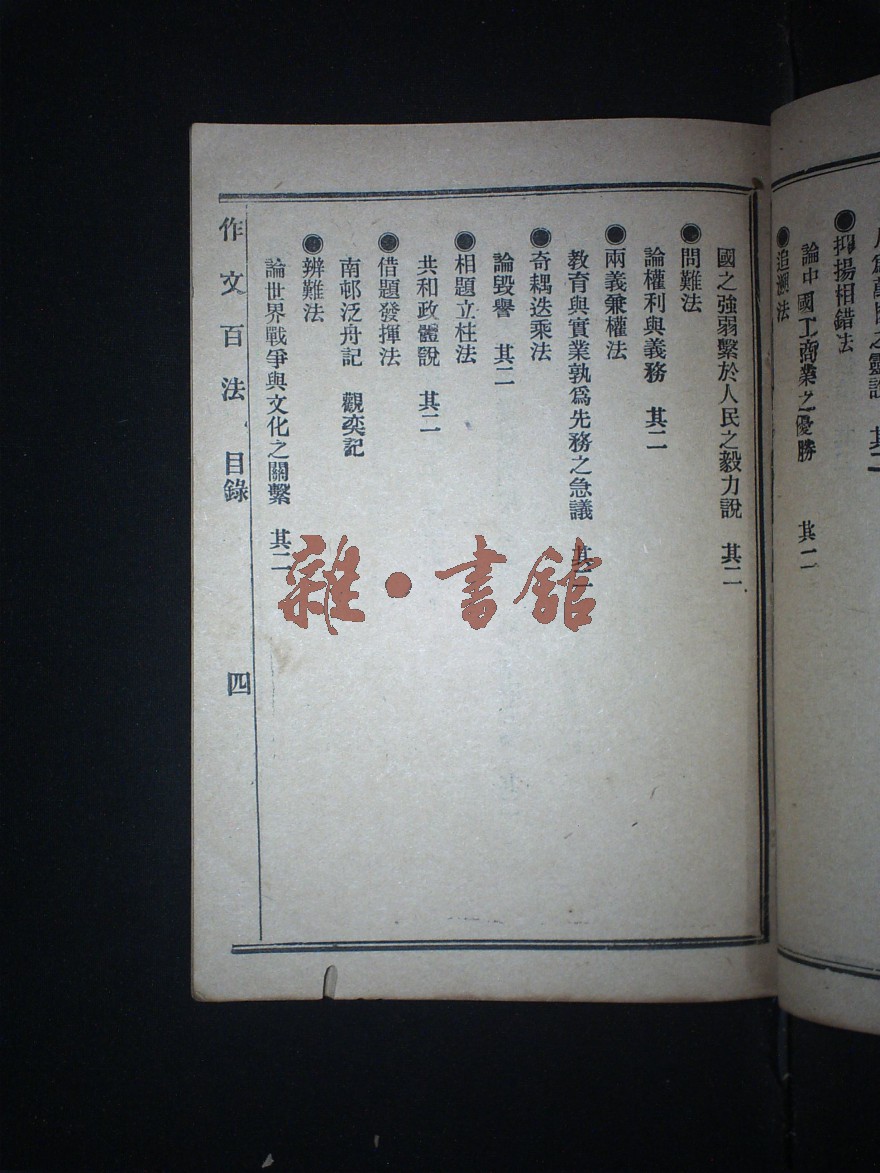 抑揚相錯法
論中國工商業之優勝　其二
追溯法
國之強弱繫於人民之毅力說　其二
●問難法
論權利與義務　其二
●兩義兼權法
教育與實業孰爲先務之急議　其二
●奇耦迭乘法
論毀譽　其二
●相題立柱法
共和政體說　其二
●借題發揮法
南邨泛舟記　觀奕記
●辨難法
論世界戰爭與文化之關繫　其二
作文百法　目錄　四
雜·書館